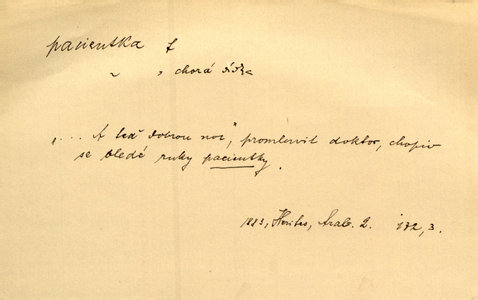 pacientka f
chorá
„... A teď dobrou noc“, promluvil doktor, chopiv
se bledé ruky pacientky.
1883, Herites, Arab. 2. 172, 3.